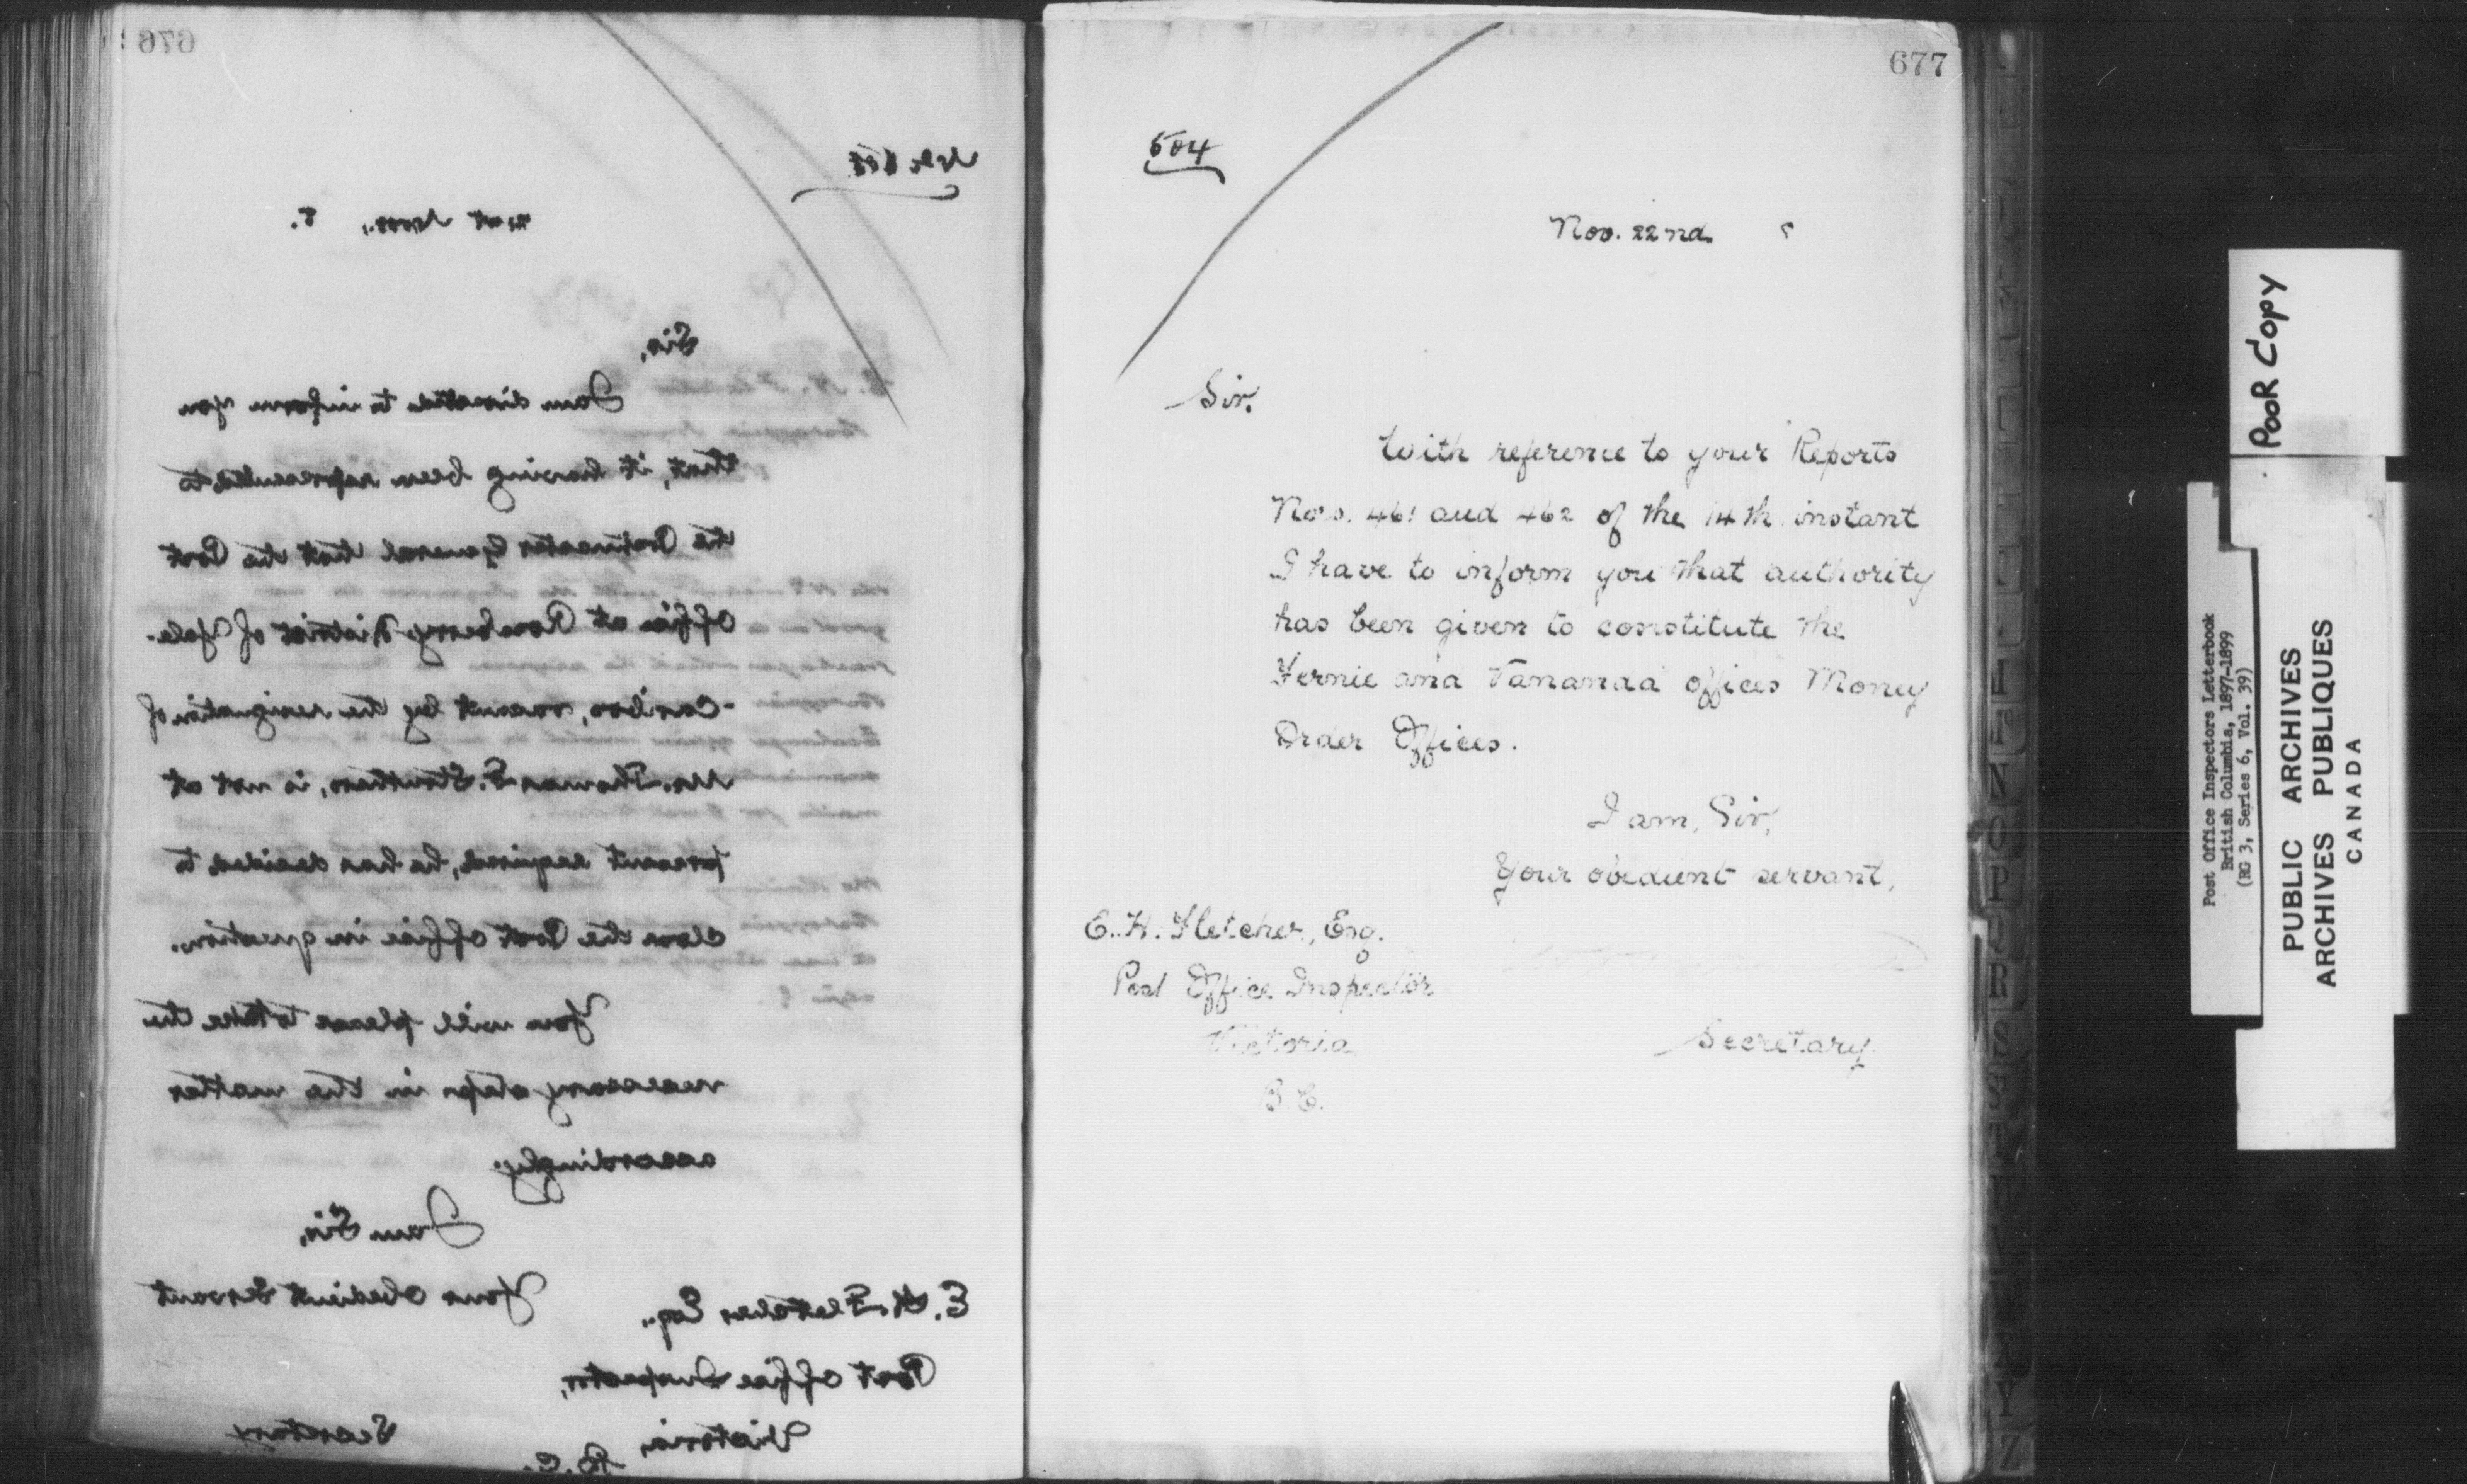 676
21st Novr., 8.
Sir,
I am directed to inform you
that, it having been represented to
the Postmaster General that the Post
Office at Roseberry, District of Yale-
-Cariboo, vacant by the resignation of
Mr. Thomas F. Struthers, is not at
present required, he has decided to
close the Post Office in question.
You will please to take the
necessary steps in the matter
accordingly.
I am Sir,
Your obedient Servant
E. H. Fletcher Esq.,
Post Office Inspector,
Victoria,
B.C.
Secretary
677
504
Nov. 22nd. 8
Sir.
With reference to your Reports
Nos. 461 and 462 of the 14th instant
I have to inform you that authority
has been given to constitute the
Fernie and Vananda offices Money
Order Offices.
I am, Sir,
Your obedient servant,
E. H. Fletcher, Esq.
Post Office Inspector
Victoria
B.C.
Secretary
POOR COPY
Post Office Inspectors Letterbook
British Columbia, 1897-1899
(RG 3, Series 6, Vol. 39)
PUBLIC ARCHIVES
ARCHIVES PUBLIQUES
CANADA